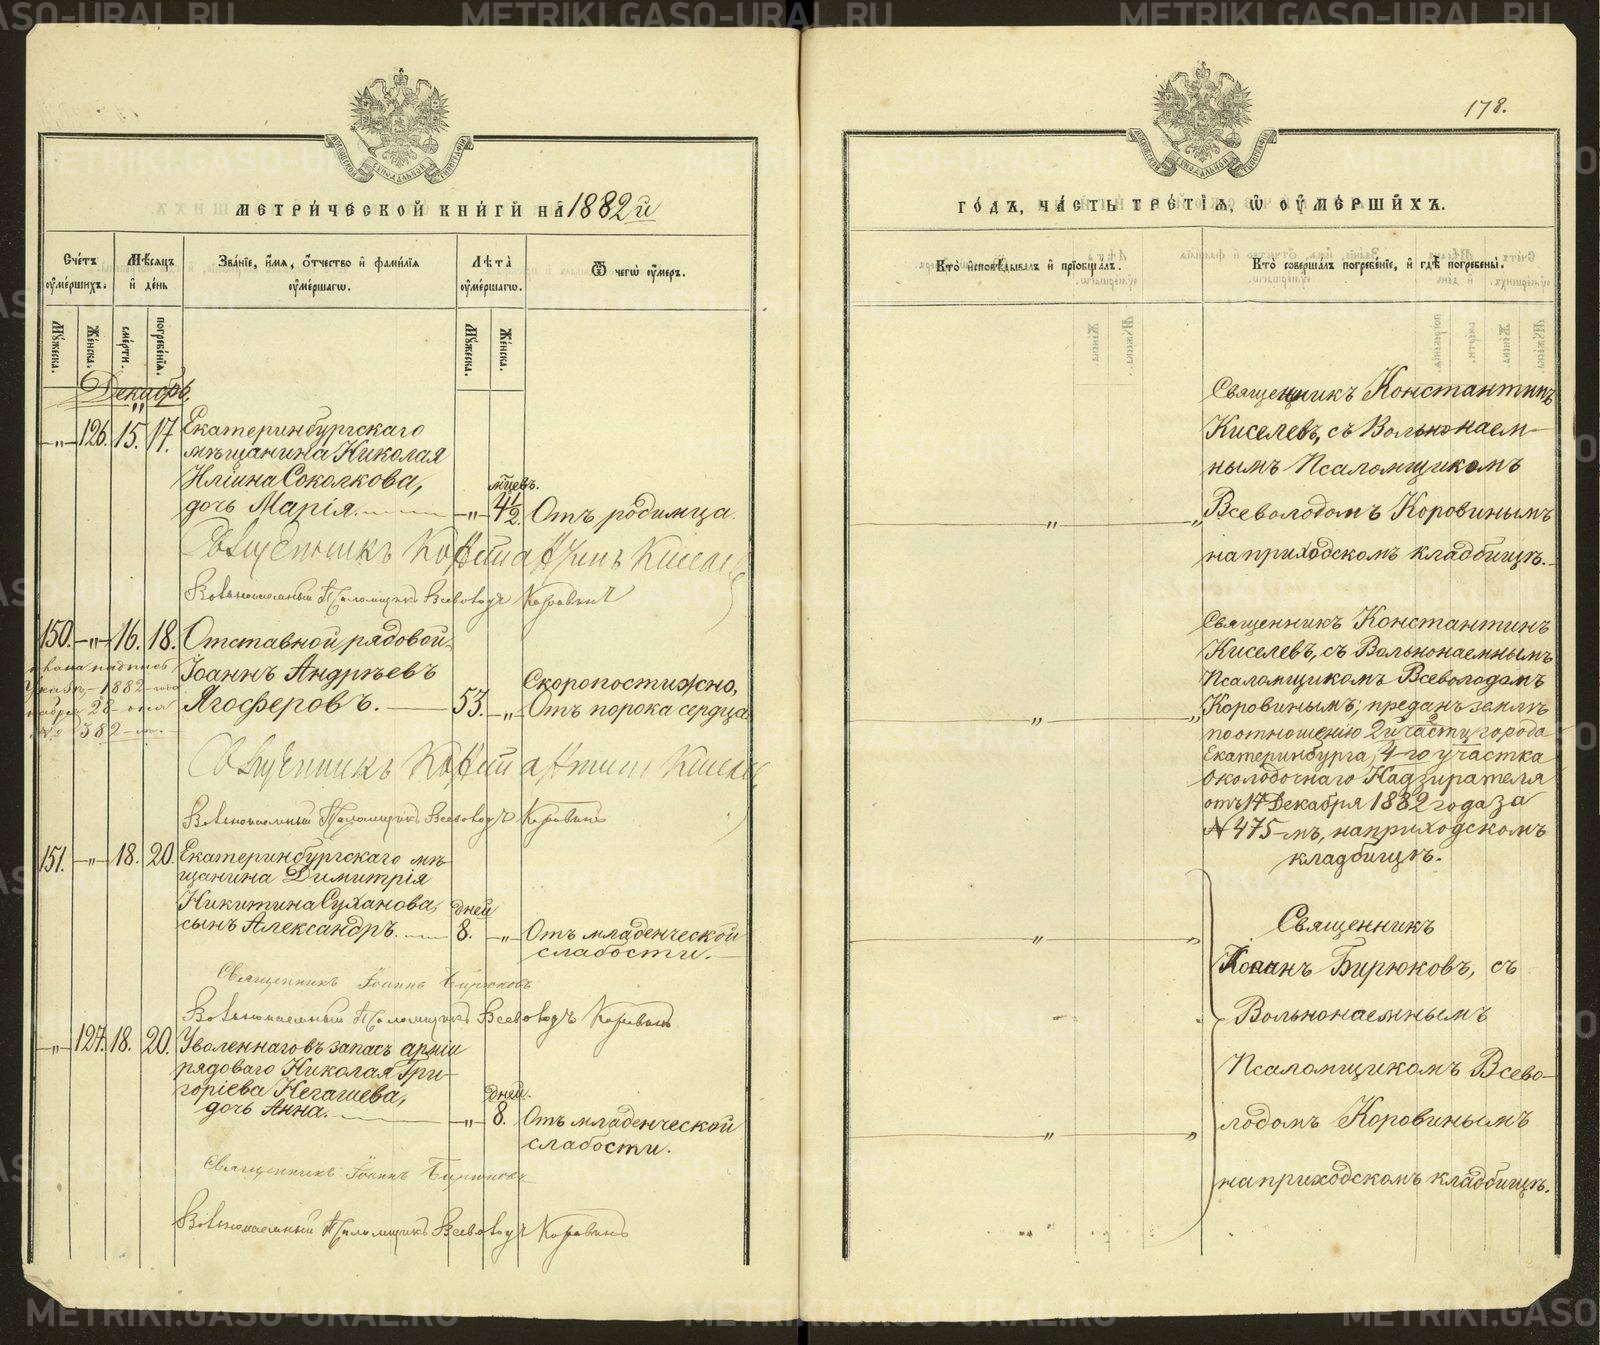 METRIKI.GASO-URAL.RU
178.
МОСКОВСКОЙ СѴНОДАЛЬНОЙ ТИПОГРАФІИ
МОСКОВСКОЙ СѴНОДАЛЬНОЙ ТИПОГРАФІИ
МЕТРИ́ЧЕСКОЙ КНИ́ГИ НА̀ 1882й
Сче́тъ оу҆ме́ршихъ.
Мѣ́сяцъ и҆ де́нь
Зва́нїе, и҆́мѧ, ѻ҆́тчество и҆ фамѝлїѧ оу҆ме́ршагѡ.
Лѣта̀ оу҆ме́ршагѡ.
Ѿ чегѡ̀ оу҆́меръ.
Мꙋ́жеска.
Же́нска.
сме́рти.
погребе́нїѧ.
Мꙋ́жеска.
Же́нска.
Декабрь.
-„- 126. 15. 17. Екатеринбургскаго
мѣщанина Николая
Ильина Соколкова,
мѣсцевъ.
дочь Марія. -„- 4½. Отъ родимца.
Священникъ Константинъ Киселевъ
Вольнонаемный Псаломщикъ Всеволодъ Коровинъ
150. -„- 16. 18. Отставной рядовой
надпись
Іоаннъ Андрѣевъ
1882 года
Ягосферовъ. 53. -„- Скоропостижно,
Отъ порока сердца
28
№ 382
Священникъ Константинъ Киселевъ
Вольнонаемный Псаломщикъ Всеволодъ Коровинъ
151. -„- 18. 20. Екатеринбургскаго мѣ-
щанина Димитрія
Никитина Суханова,
дней
сынъ Александръ. 8. -„- Отъ младенческой
слабости.
Священникъ Іоаннъ Бирюковъ
Вольнонаемный Псаломщикъ Всеволодъ Коровинъ
-„- 127. 18. 20. Уволеннаго въ запасъ арміи
рядоваго Николая Гри-
горіева Негашева,
дней.
дочь Анна. -„- 8. Отъ младенческой
слабости.
Священникъ Іоаннъ Бирюковъ
Вольнонаемный Псаломщикъ Всеволодъ Коровинъ
ГО́ДЪ, ЧА́СТЬ ТРЕ́ТЇѦ, Ѽ ОУ҆МЕ́РШИХЪ.
Кто̀ и҆сповѣ́дывалъ и҆ прїѡбща́лъ.
Кто̀ соверша́лъ погребе́нїе, и҆ гдѣ̀ погребены̀.
Священникъ Константинъ
Киселевъ, съ Вольнонаем-
нымъ Псаломщикомъ
Всеволодомъ Коровинымъ
на приходскомъ кладбищѣ.
Священникъ Константинъ
Киселевъ, съ Вольнонаемнымъ
Псаломщикомъ Всеволодомъ
Коровинымъ; преданъ землѣ
по отношенію 2й части города
Екатеринбурга, 4-го участка
Околодочнаго Надзирателя
отъ 17 Декабря 1882 года за
№ 475-мъ, на приходскомъ
кладбищѣ.
Священникъ
Іоаннъ Бирюковъ, съ
Вольнонаемнымъ
Псаломщикомъ Всево-
лодомъ Коровинымъ
на приходскомъ кладбищѣ.